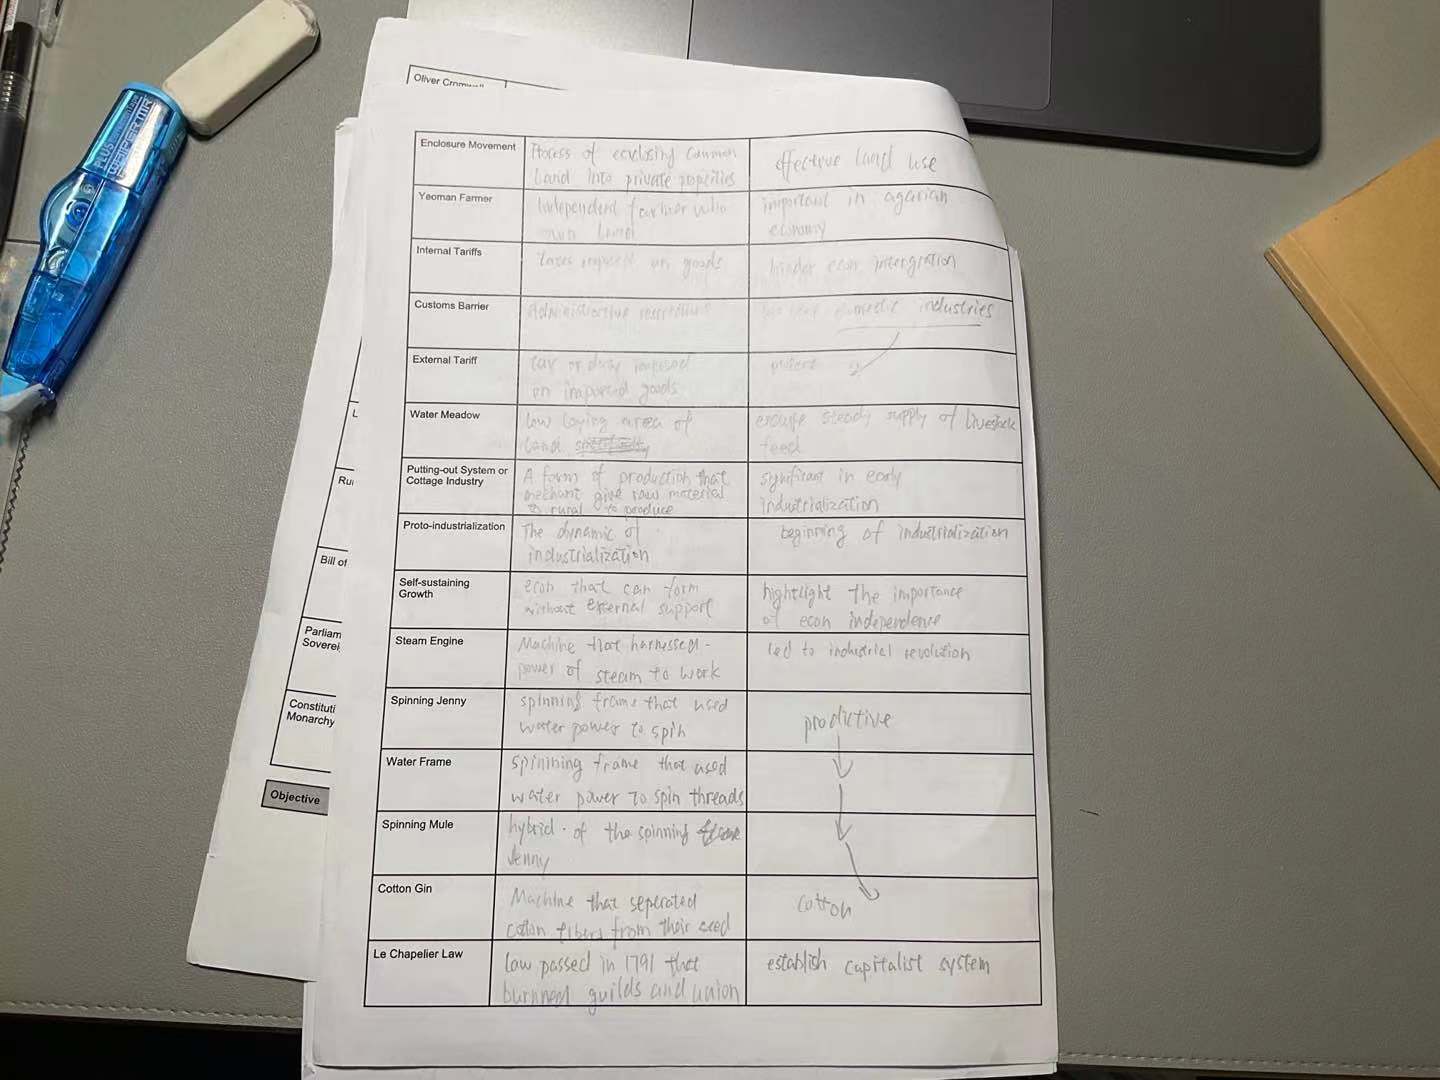 PLUS
Oliver Cromwell
Enclosure Movement
Process of enclosing common
land into private properties
effective land use
Yeoman Farmer
Independent farmer who
own land
important in agarian
economy
Internal Tariffs
taxes imposed on goods
hinder econ intergration
Customs Barrier
Administrative restrictions
domestic industries
External Tariff
tax or duty imposed
on imported goods
protect
Water Meadow
low laying area of
land
ensure steady supply of livestock
feed
Putting-out System or
Cottage Industry
A form of production that
mechant give raw material
to rural to produce
significant in early
industrialization
Proto-industrialization
The dynamic of
industrialization
beginning of industrialization
Self-sustaining
Growth
econ that can form
without external support
hightlight the importance
of econ independence
Steam Engine
Machine that harnessed
power of steam to work
led to industrial revolution
Spinning Jenny
spinning frame that used
water power to spin
prodictive
Water Frame
spinining frame that used
water power to spin threads
Spinning Mule
hybrid of the spinning
Jenny
Cotton Gin
Machine that seperated
cotton fibers from their seed
cotton
Le Chapelier Law
law passed in 1791 that
burnned guilds and union
establish capitalist system
L
Ru
Bill of
Parliam
Sovere
Constituti
Monarchy
Objective